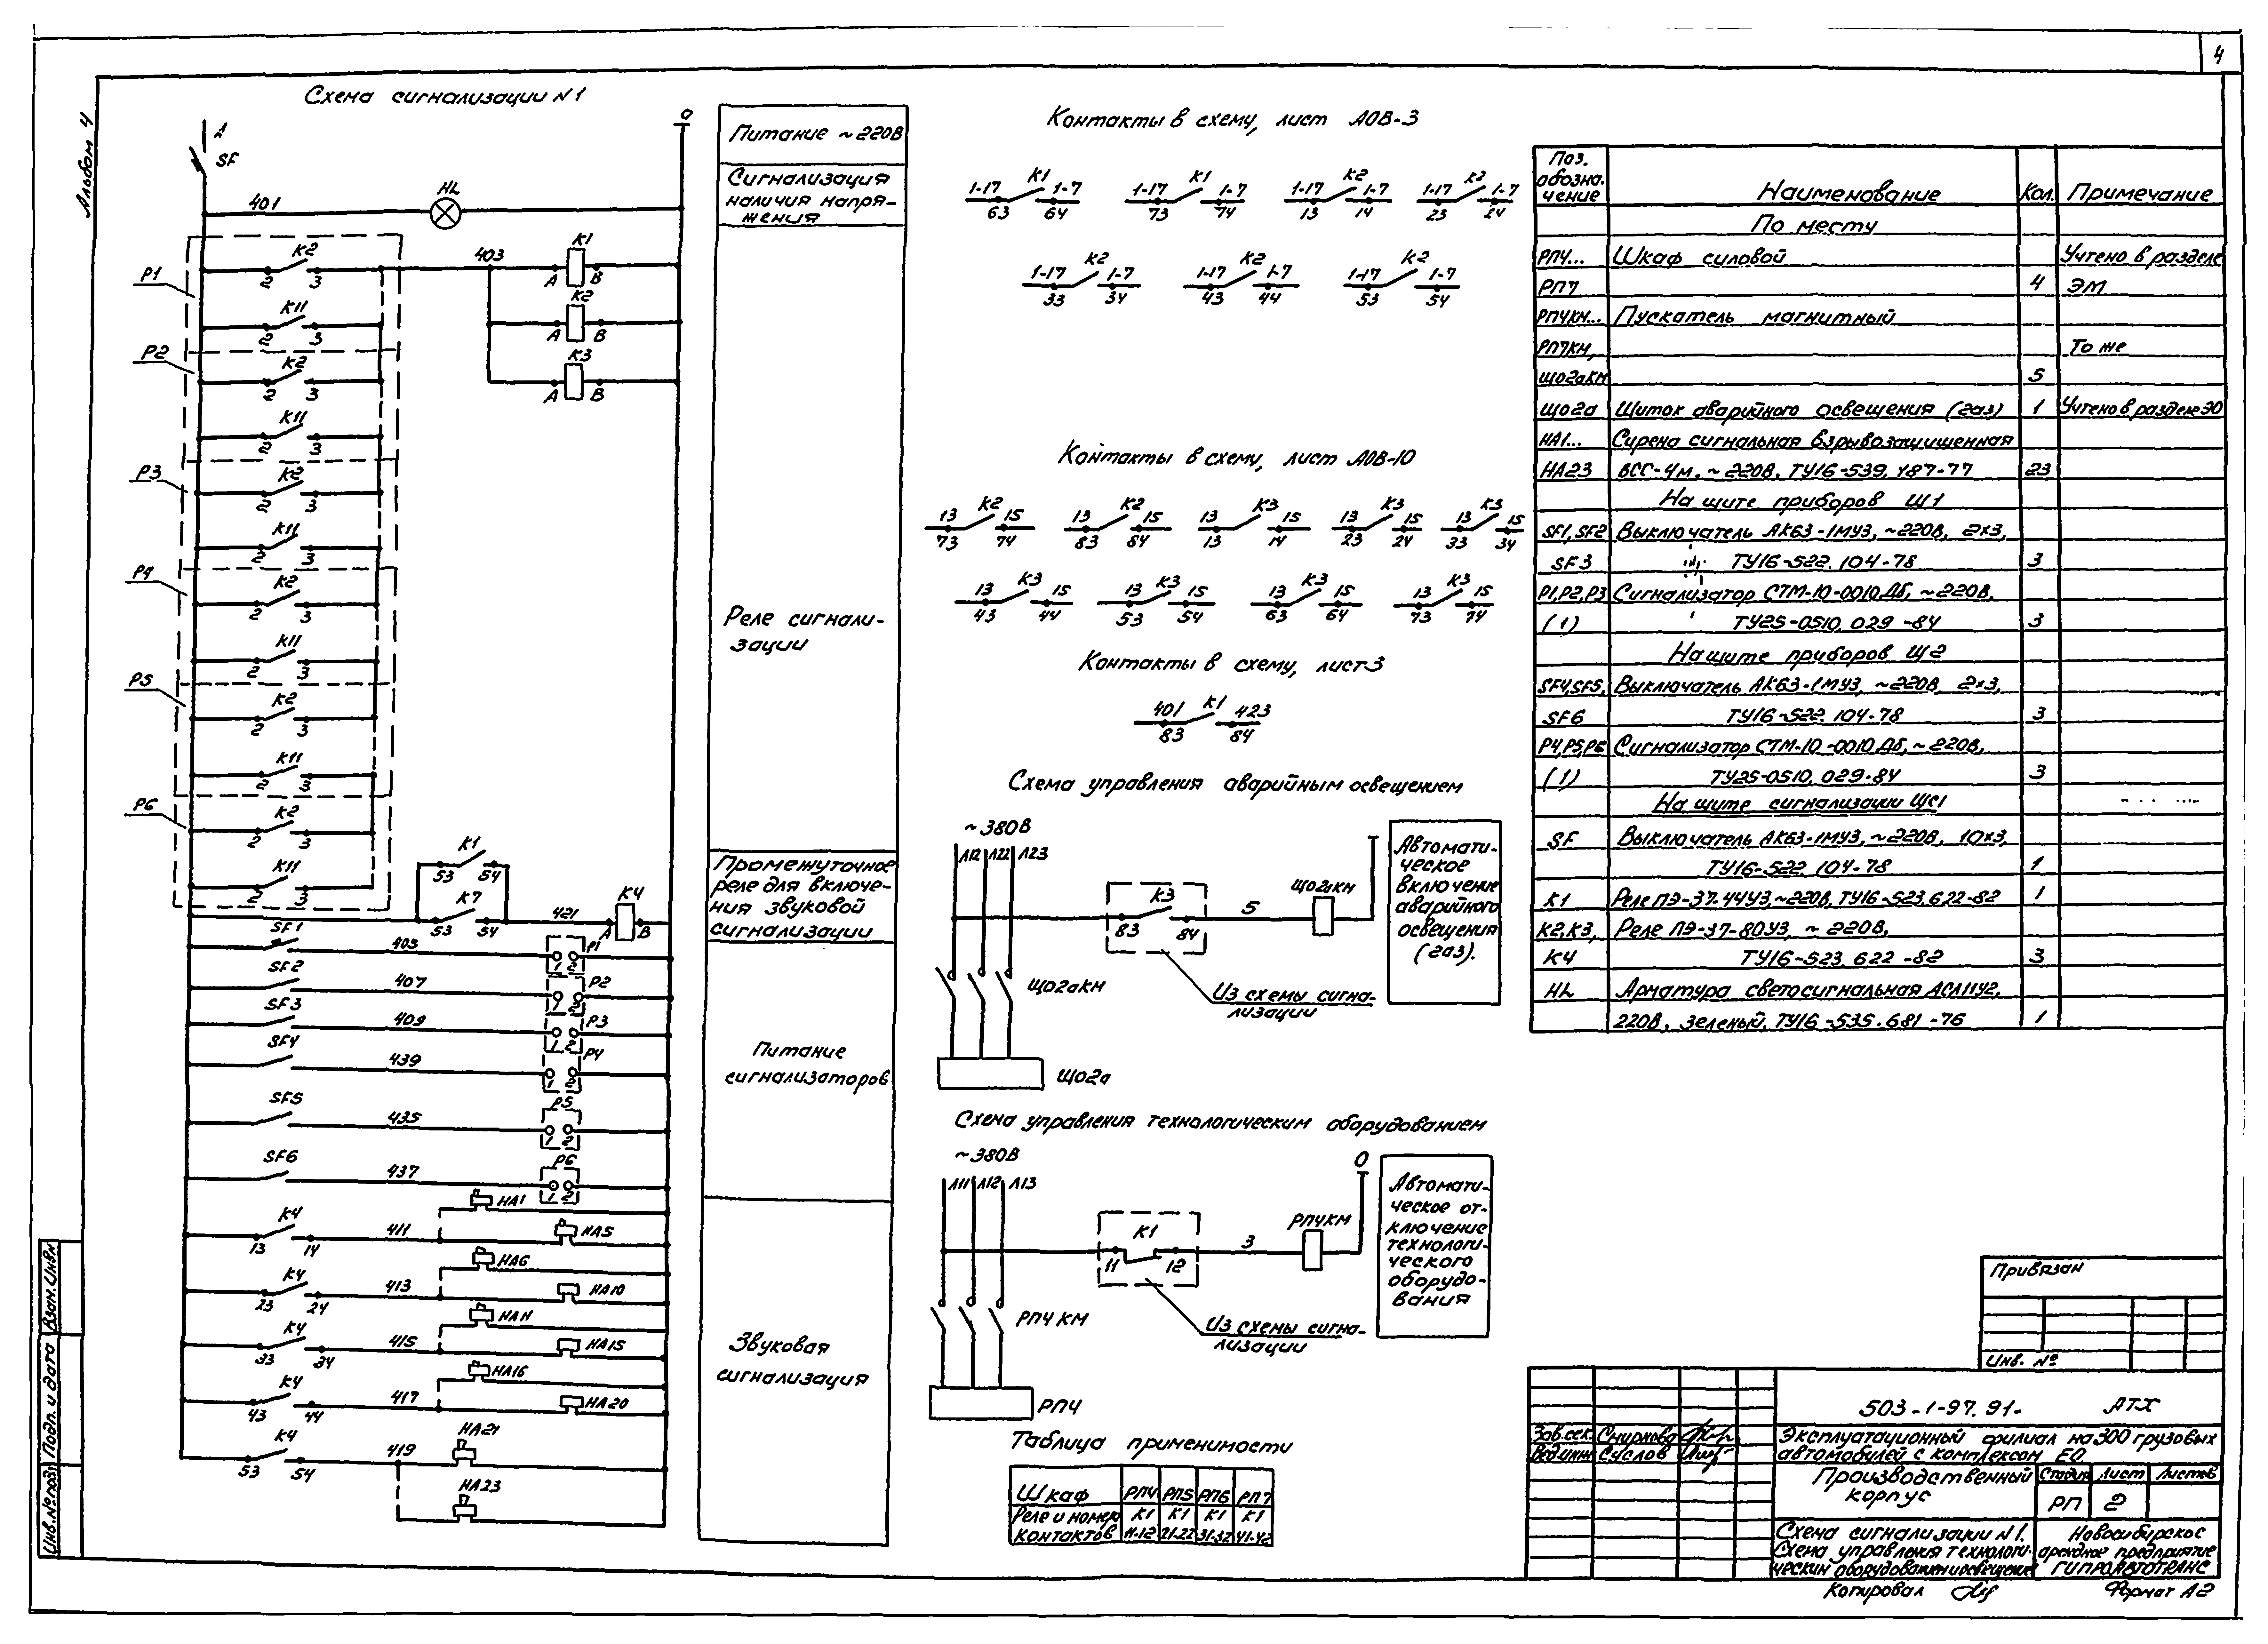 4
Альбом 4
Схема сигнализации N1
А
0
SF
401
HL
Питание ~220В
Сигнализация
наличия напря-
жения
P1
K2
2 3
403
K1
A B
K11
2 3
K2
A B
P2
K2
2 3
K3
A B
K11
2 3
P3
K2
2 3
K11
2 3
P4
K2
2 3
K11
2 3
P5
K2
2 3
K11
2 3
P6
K2
2 3
K11
2 3
Реле сигнали-
зации
K1
53 54
K7
53 54
421
K4
A B
Промежуточное
реле для включе-
ния звуковой
сигнализации
SF1
405
P1
1 2
SF2
407
P2
1 2
SF3
409
P3
1 2
SF4
439
P4
1 2
SF5
435
P5
1 2
SF6
437
P6
1 2
Питание
сигнализаторов
HA1
K4
13 14
411
HA5
HA6
K4
23 24
413
HA10
HA11
K4
33 34
415
HA15
HA16
K4
43 44
417
HA20
HA21
K4
53 54
419
HA23
Звуковая
сигнализация
Контакты в схему, лист АОВ-3
1-17 K1 1-7
63 64
1-17 K1 1-7
73 74
1-17 K2 1-7
13 14
1-17 K2 1-7
23 24
1-17 K2 1-7
33 34
1-17 K2 1-7
43 44
1-17 K2 1-7
53 54
Контакты в схему, лист АОВ-10
13 K2 15
73 74
13 K2 15
83 84
13 K3 15
13 14
13 K3 15
23 24
13 K3 15
33 34
13 K3 15
43 44
13 K3 15
53 54
13 K3 15
63 64
13 K3 15
73 74
Контакты в схему, лист 3
401 K1 423
83 84
Схема управления аварийным освещением
~380В
Л12 Л22 Л23
K3
83 84
5
ЩО2аКМ
Автомати-
ческое
включение
аварийного
освещения
(газ).
ЩО2аКМ
Из схемы сигна-
лизации
ЩО2а
Схема управления технологическим оборудованием
~380В
0
Л11 Л12 Л13
K1
11 12
3
РП4КМ
Автомати-
ческое от-
ключение
технологи-
ческого
оборудо-
вания
РП4 КМ
Из схемы сигна-
лизации
РП4
Таблица применимости
Шкаф РП4 РП5 РП6 РП7
Реле и номер К1 К1 К1 К1
контактов 11-12 21-22 31-32 41-42
Поз. обозна. чение Наименование Кол. Примечание
По месту
РП4... Шкаф силовой Учтено в разделе
РП7 4 ЭМ
РП4КМ... Пускатель магнитный
РП7КМ, То же
ЩО2аКМ 5
ЩО2а Щиток аварийного освещения (газ) 1 Учтено в разделе ЭО
HA1... Сирена сигнальная взрывозащищенная
HA23 ВСС-4м, ~220В, ТУ16-539, 487-77 23
На щите приборов Щ1
SF1, SF2 Выключатель АК63-1МУ3, ~220В, 2×3,
SF3 ТУ16-522.104-78 3
P1,P2,P3 Сигнализатор СТМ-10-0010ДБ, ~220В,
(1) ТУ25-0510.029-84 3
На щите приборов Щ2
SF4,SF5, Выключатель АК63-1МУ3, ~220В, 2×3,
SF6 ТУ16-522.104-78 3
P4,P5,P6 Сигнализатор СТМ-10-0010ДБ, ~220В,
(1) ТУ25-0510.029-84 3
На щите сигнализации ЩС1
SF Выключатель АК63-1МУ3, ~220В, 10×3,
ТУ16-522.104-78 1
K1 Реле ПЭ-37-44У3, ~220В, ТУ16-523.622-82 1
K2,K3, Реле ПЭ-37-80У3, ~220В,
K4 ТУ16-523.622-82 3
HL Арматура светосигнальная АСЛ11У2,
220В, зеленый, ТУ16-535.681-76 1
Привязан
Инв. №
503-1-97.91- АТХ
Зав.сек. Смирнова
Вед.инж Суслов
Эксплуатационный филиал на 300 грузовых
автомобилей с комплексом ЕО.
Производственный
корпус
Стадия Лист Листов
РП 2
Схема сигнализации N1.
Схема управления технологи-
ческим оборудованием и освещением
Новосибирское
арендное предприятие
ГИПРОАВТОТРАНС
Копировал
Формат А2
Взам.Инв.N
Подп. и дата
Инв.№ подл